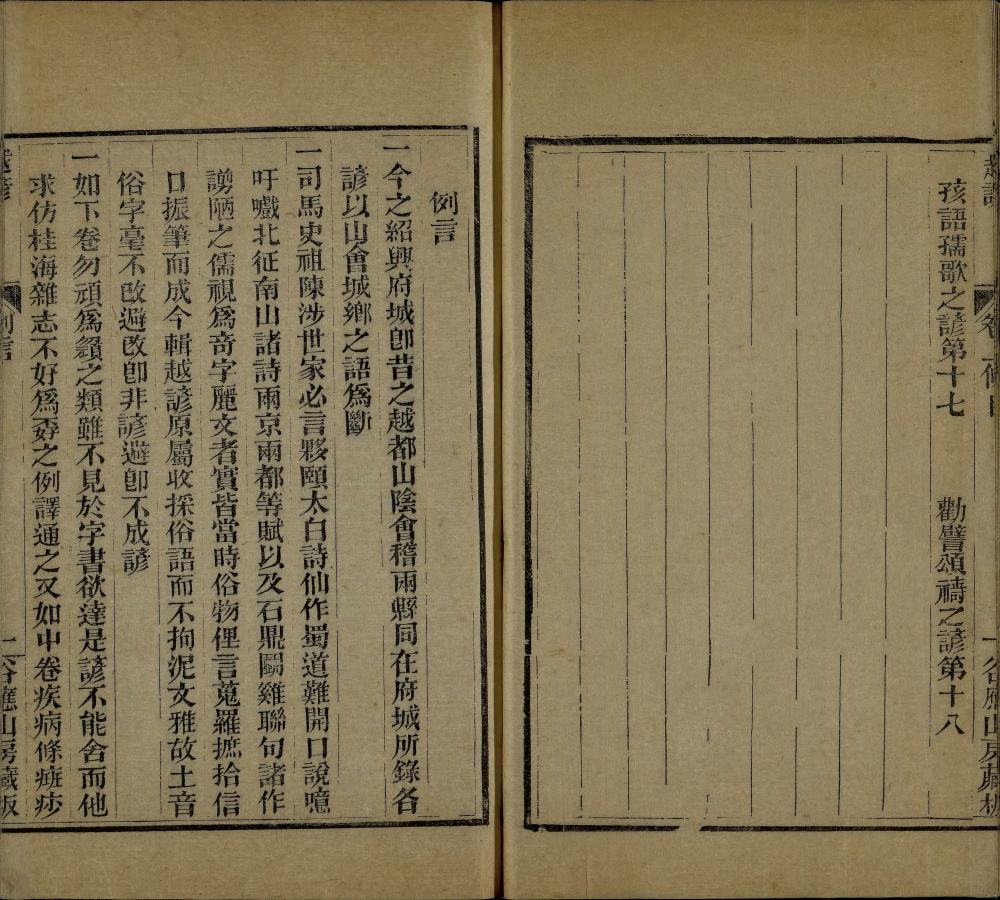 孩語孺歌之諺第十七　勸譬頌禱之諺第十八
例言
一今之紹興府城卽昔之越都山陰會稽兩縣同在府城所錄各
諺以山會城鄉之語爲斷
一司馬史祖陳涉世家必言夥頤太白詩仙作蜀道難開口說噫
吁嚱北征南山諸詩兩京兩都等賦以及石鼎鬭雞聯句諸作
謭陋之儒視爲奇字麗文者實皆當時俗物俚言蒐羅摭拾信
口振筆而成今輯越諺原屬收採俗語而不拘泥文雅故土音
俗字毫不改避改卽非諺避卽不成諺
一如下卷勿頑爲之類雖不見於字書欲達是諺不能舍而他
求仿桂海雜志不好爲孬之例譯通之又如中卷疾病條痧
越諺
例言
二谷應山房藏板